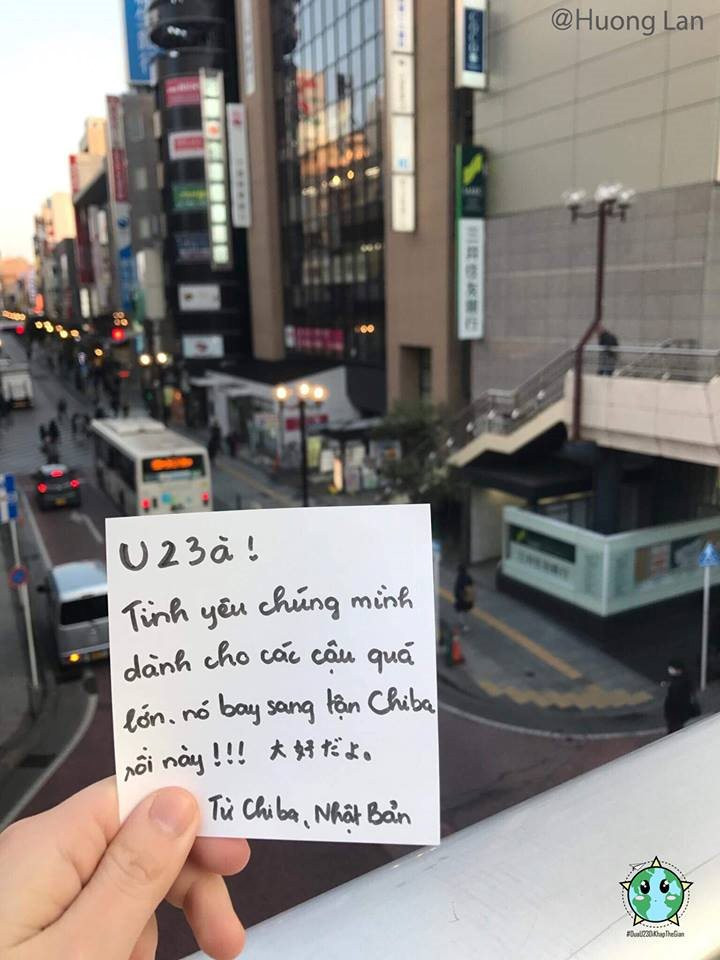 @Huong Lan
三井住友銀行
U23 à!
Tình yêu chúng mình
dành cho các cậu quá
lớn. nó bay sang tận Chiba
rồi này!!! 大好だよ。
Từ Chiba, Nhật Bản
#DuaU23DiKhapTheGian